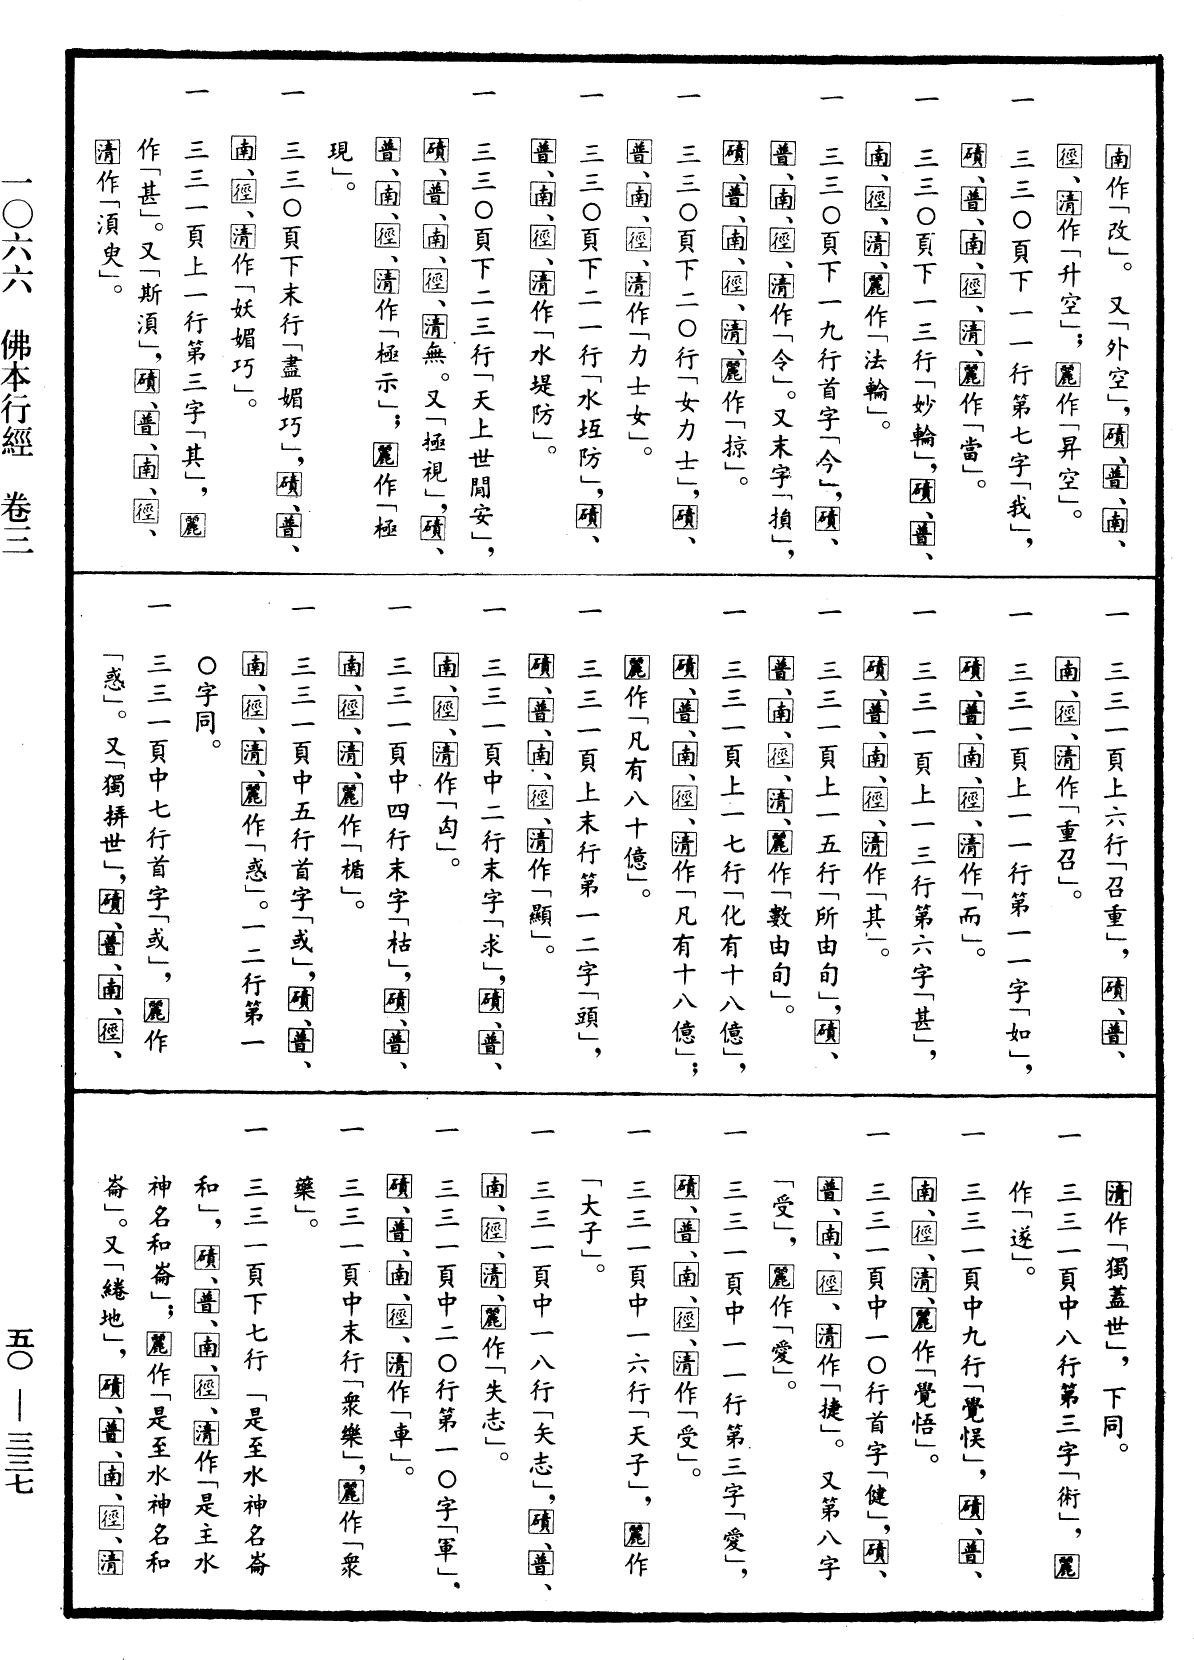 南作「改」。又「外空」，磧、普、南、
徑、清作「升空」；麗作「昇空」。
一　三三〇頁下一一行第七字「我」，
磧、普、南、徑、清、麗作「當」。
一　三三〇頁下一三行「妙輪」，磧、普、
南、徑、清、麗作「法輪」。
一　三三〇頁下一九行首字「今」，磧、
普、南、徑、清作「令」。又末字「損」，
磧、普、南、徑、清、麗作「掠」。
一　三三〇頁下二〇行「女力士」，磧、
普、南、徑、清作「力士女」。
一　三三〇頁下二一行「水坘防」，磧、
普、南、徑、清作「水堤防」。
一　三三〇頁下二三行「天上世間安」，
磧、普、南、徑、清無。又「極視」，磧、
普、南、徑、清作「極示」；麗作「極
現」。
一　三三〇頁下末行「盡媚巧」，磧、普、
南、徑、清作「妖媚巧」。
一　三三一頁上一行第三字「其」，麗
作「甚」。又「斯須」，磧、普、南、徑、
清作「須臾」。
一　三三一頁上六行「召重」，磧、普、
南、徑、清作「重召」。
一　三三一頁上一一行第一一字「如」，
磧、普、南、徑、清作「而」。
一　三三一頁上一三行第六字「甚」，
磧、普、南、徑、清作「其」。
一　三三一頁上一五行「所由旬」，磧、
普、南、徑、清、麗作「數由旬」。
一　三三一頁上一七行「化有十八億」，
磧、普、南、徑、清作「凡有十八億」；
麗作「凡有八十億」。
一　三三一頁上末行第一二字「頭」，
磧、普、南、徑、清作「顯」。
一　三三一頁中二行末字「求」，磧、普、
南、徑、清作「囟」。
一　三三一頁中四行末字「枯」，磧、普、
南、徑、清、麗作「楯」。
一　三三一頁中五行首字「或」，磧、普、
南、徑、清、麗作「惑」。一二行第一
〇字同。
一　三三一頁中七行首字「或」，麗作
「惑」。又「獨拼世」，磧、普、南、徑、
清作「獨蓋世」，下同。
一　三三一頁中八行第三字「術」，麗
作「遂」。
一　三三一頁中九行「覺悮」，磧、普、
南、徑、清、麗作「覺悟」。
一　三三一頁中一〇行首字「健」，磧、
普、南、徑、清作「捷」。又第八字
「受」，麗作「愛」。
一　三三一頁中一一行第三字「愛」，
磧、普、南、徑、清作「受」。
一　三三一頁中一六行「天子」，麗作
「大子」。
一　三三一頁中一八行「矢志」，磧、普、
南、徑、清、麗作「失志」。
一　三三一頁中二〇行第一〇字「軍」，
磧、普、南、徑、清作「車」。
一　三三一頁中末行「衆樂」，麗作「衆
藥」。
一　三三一頁下七行「是至水神名崙
和」，磧、普、南、徑、清作「是主水
神名和崙」；麗作「是至水神名和
崙」。又「綣地」，磧、普、南、徑、清
一〇六六　佛本行經　卷三
五〇——三三七